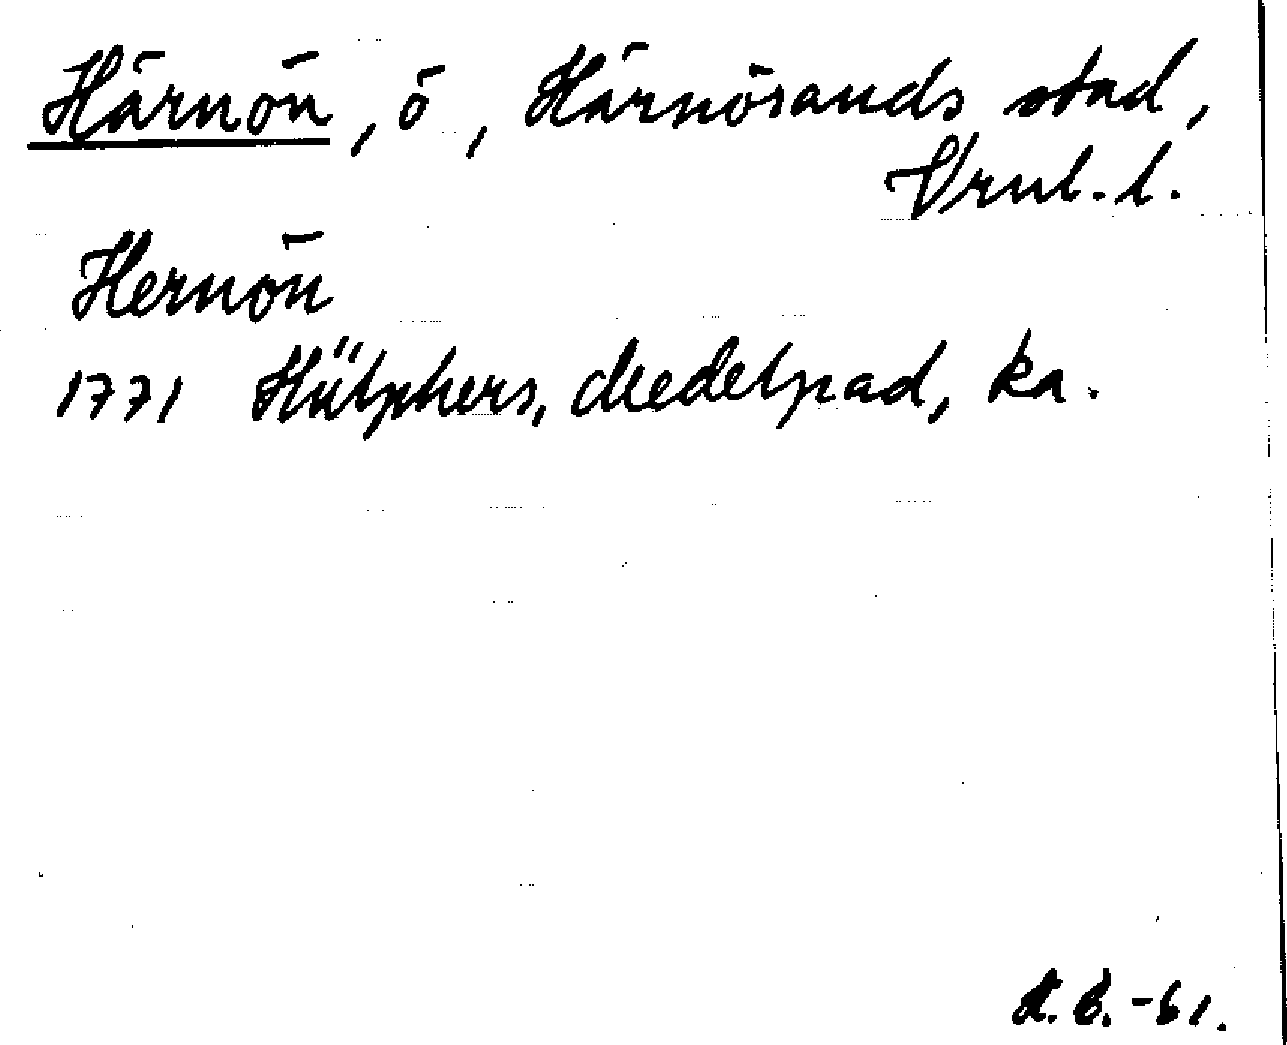 Härnön, ö, Härnösands stad,
Vrnl. l.
Hernön
1771 Hülphers, Medelpad, ka.
-61.